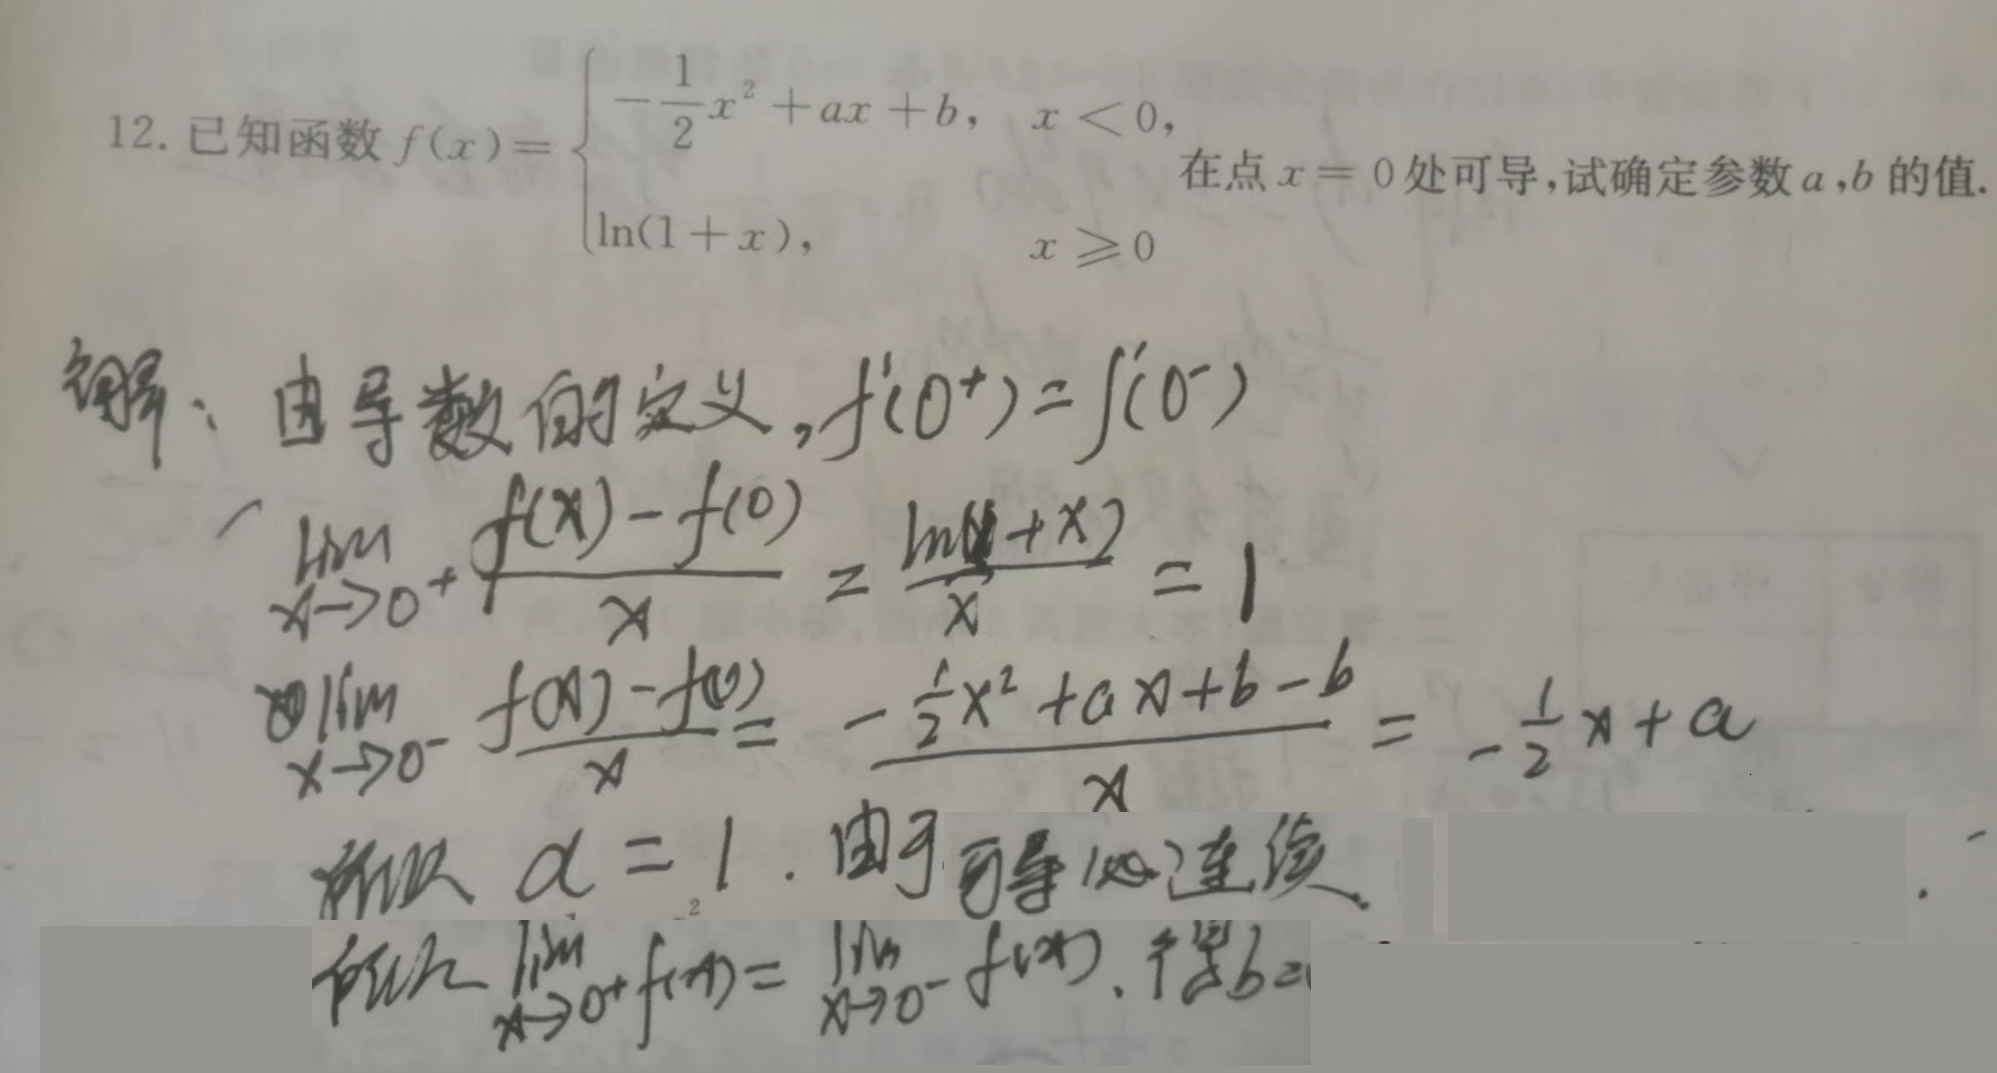 12. 已知函数 f(x) = { -\frac{1}{2}x² + ax + b, x < 0, ln(1+x), x ⩾ 0 在点 x = 0 处可导,试确定参数 a,b 的值.
解: 由导数的定义, f'(0⁺) = f'(0⁻)
lim_{x→0⁺} \frac{f(x) - f(0)}{x} = \frac{ln(1+x)}{x} = 1
lim_{x→0⁻} \frac{f(x) - f(0)}{x} = \frac{-\frac{1}{2}x² + ax + b - b}{x} = -\frac{1}{2}x + a
所以 a = 1. 由于可导必连续.
所以 lim_{x→0⁺} f(x) = lim_{x→0⁻} f(x). 得 b =